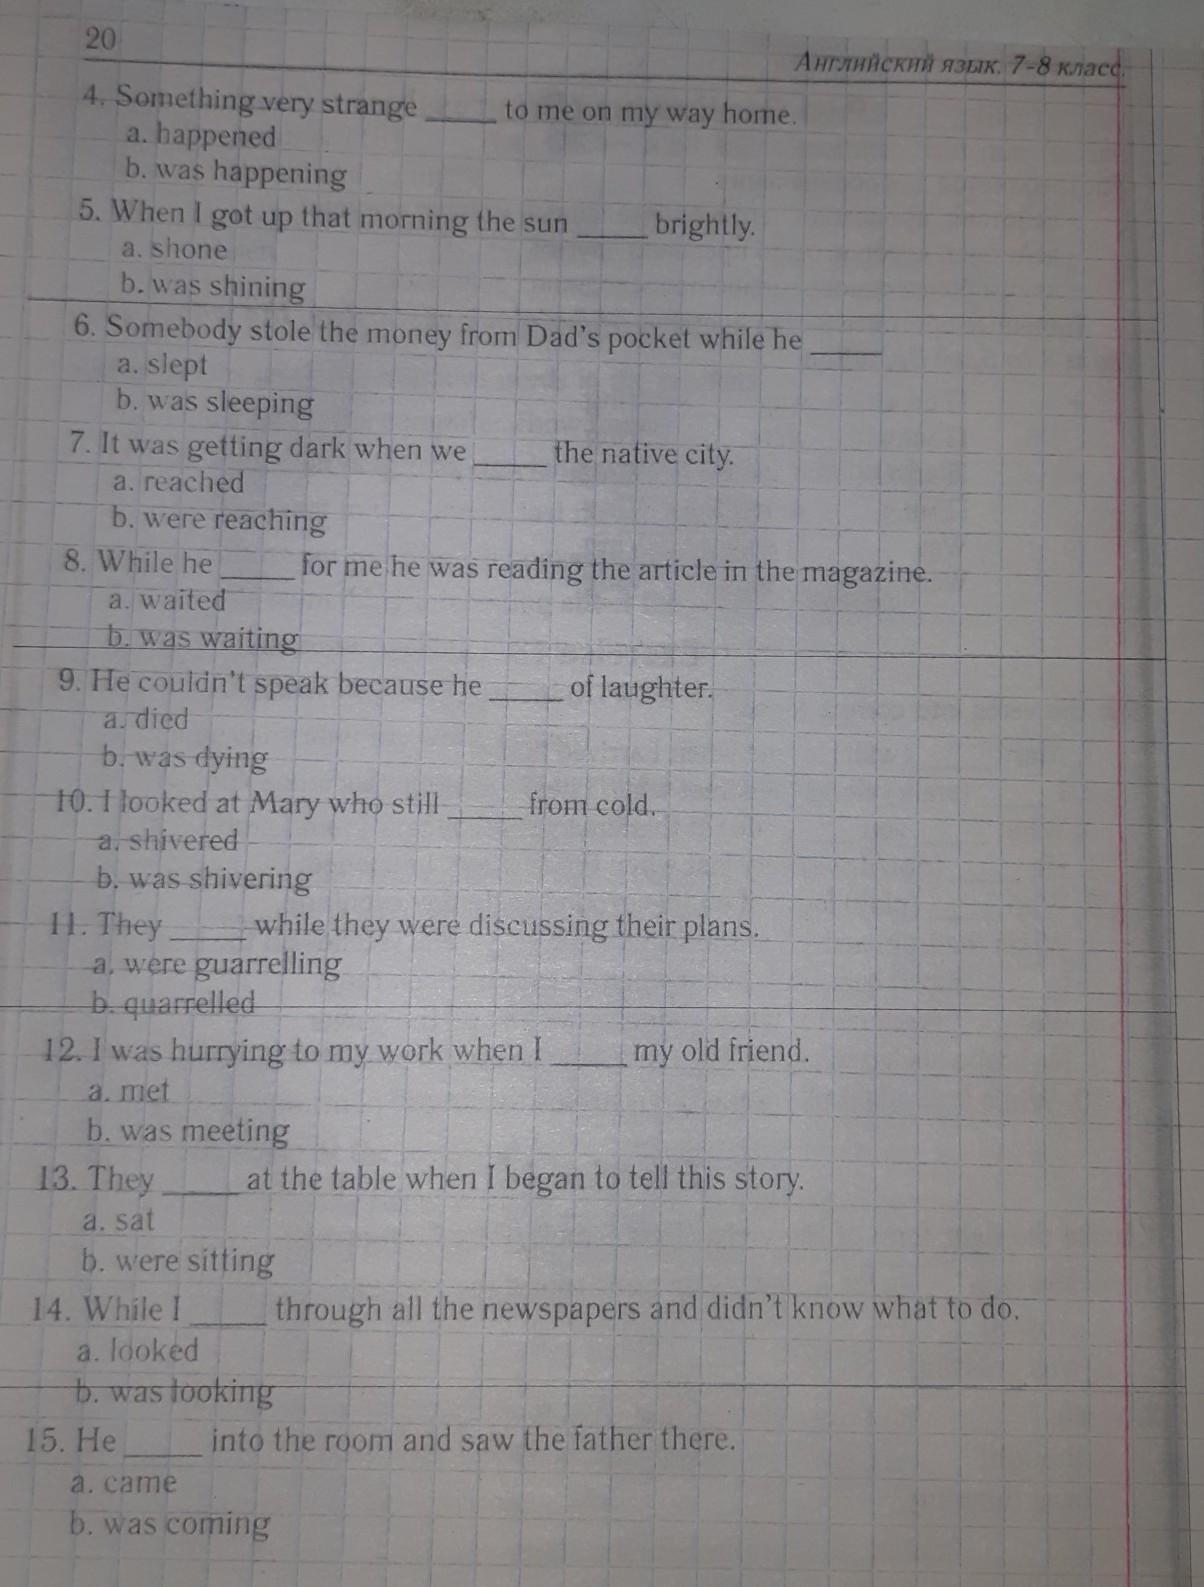 20
Английский язык. 7-8 класс.
4. Something very strange _____ to me on my way home.
a. happened
b. was happening
5. When I got up that morning the sun _____ brightly.
a. shone
b. was shining
6. Somebody stole the money from Dad's pocket while he _____
a. slept
b. was sleeping
7. It was getting dark when we _____ the native city.
a. reached
b. were reaching
8. While he _____ for me he was reading the article in the magazine.
a. waited
b. was waiting
9. He couldn't speak because he _____ of laughter.
a. died
b. was dying
10. I looked at Mary who still _____ from cold.
a. shivered
b. was shivering
11. They _____ while they were discussing their plans.
a. were guarrelling
b. quarrelled
12. I was hurrying to my work when I _____ my old friend.
a. met
b. was meeting
13. They _____ at the table when I began to tell this story.
a. sat
b. were sitting
14. While I _____ through all the newspapers and didn't know what to do.
a. looked
b. was looking
15. He _____ into the room and saw the father there.
a. came
b. was coming